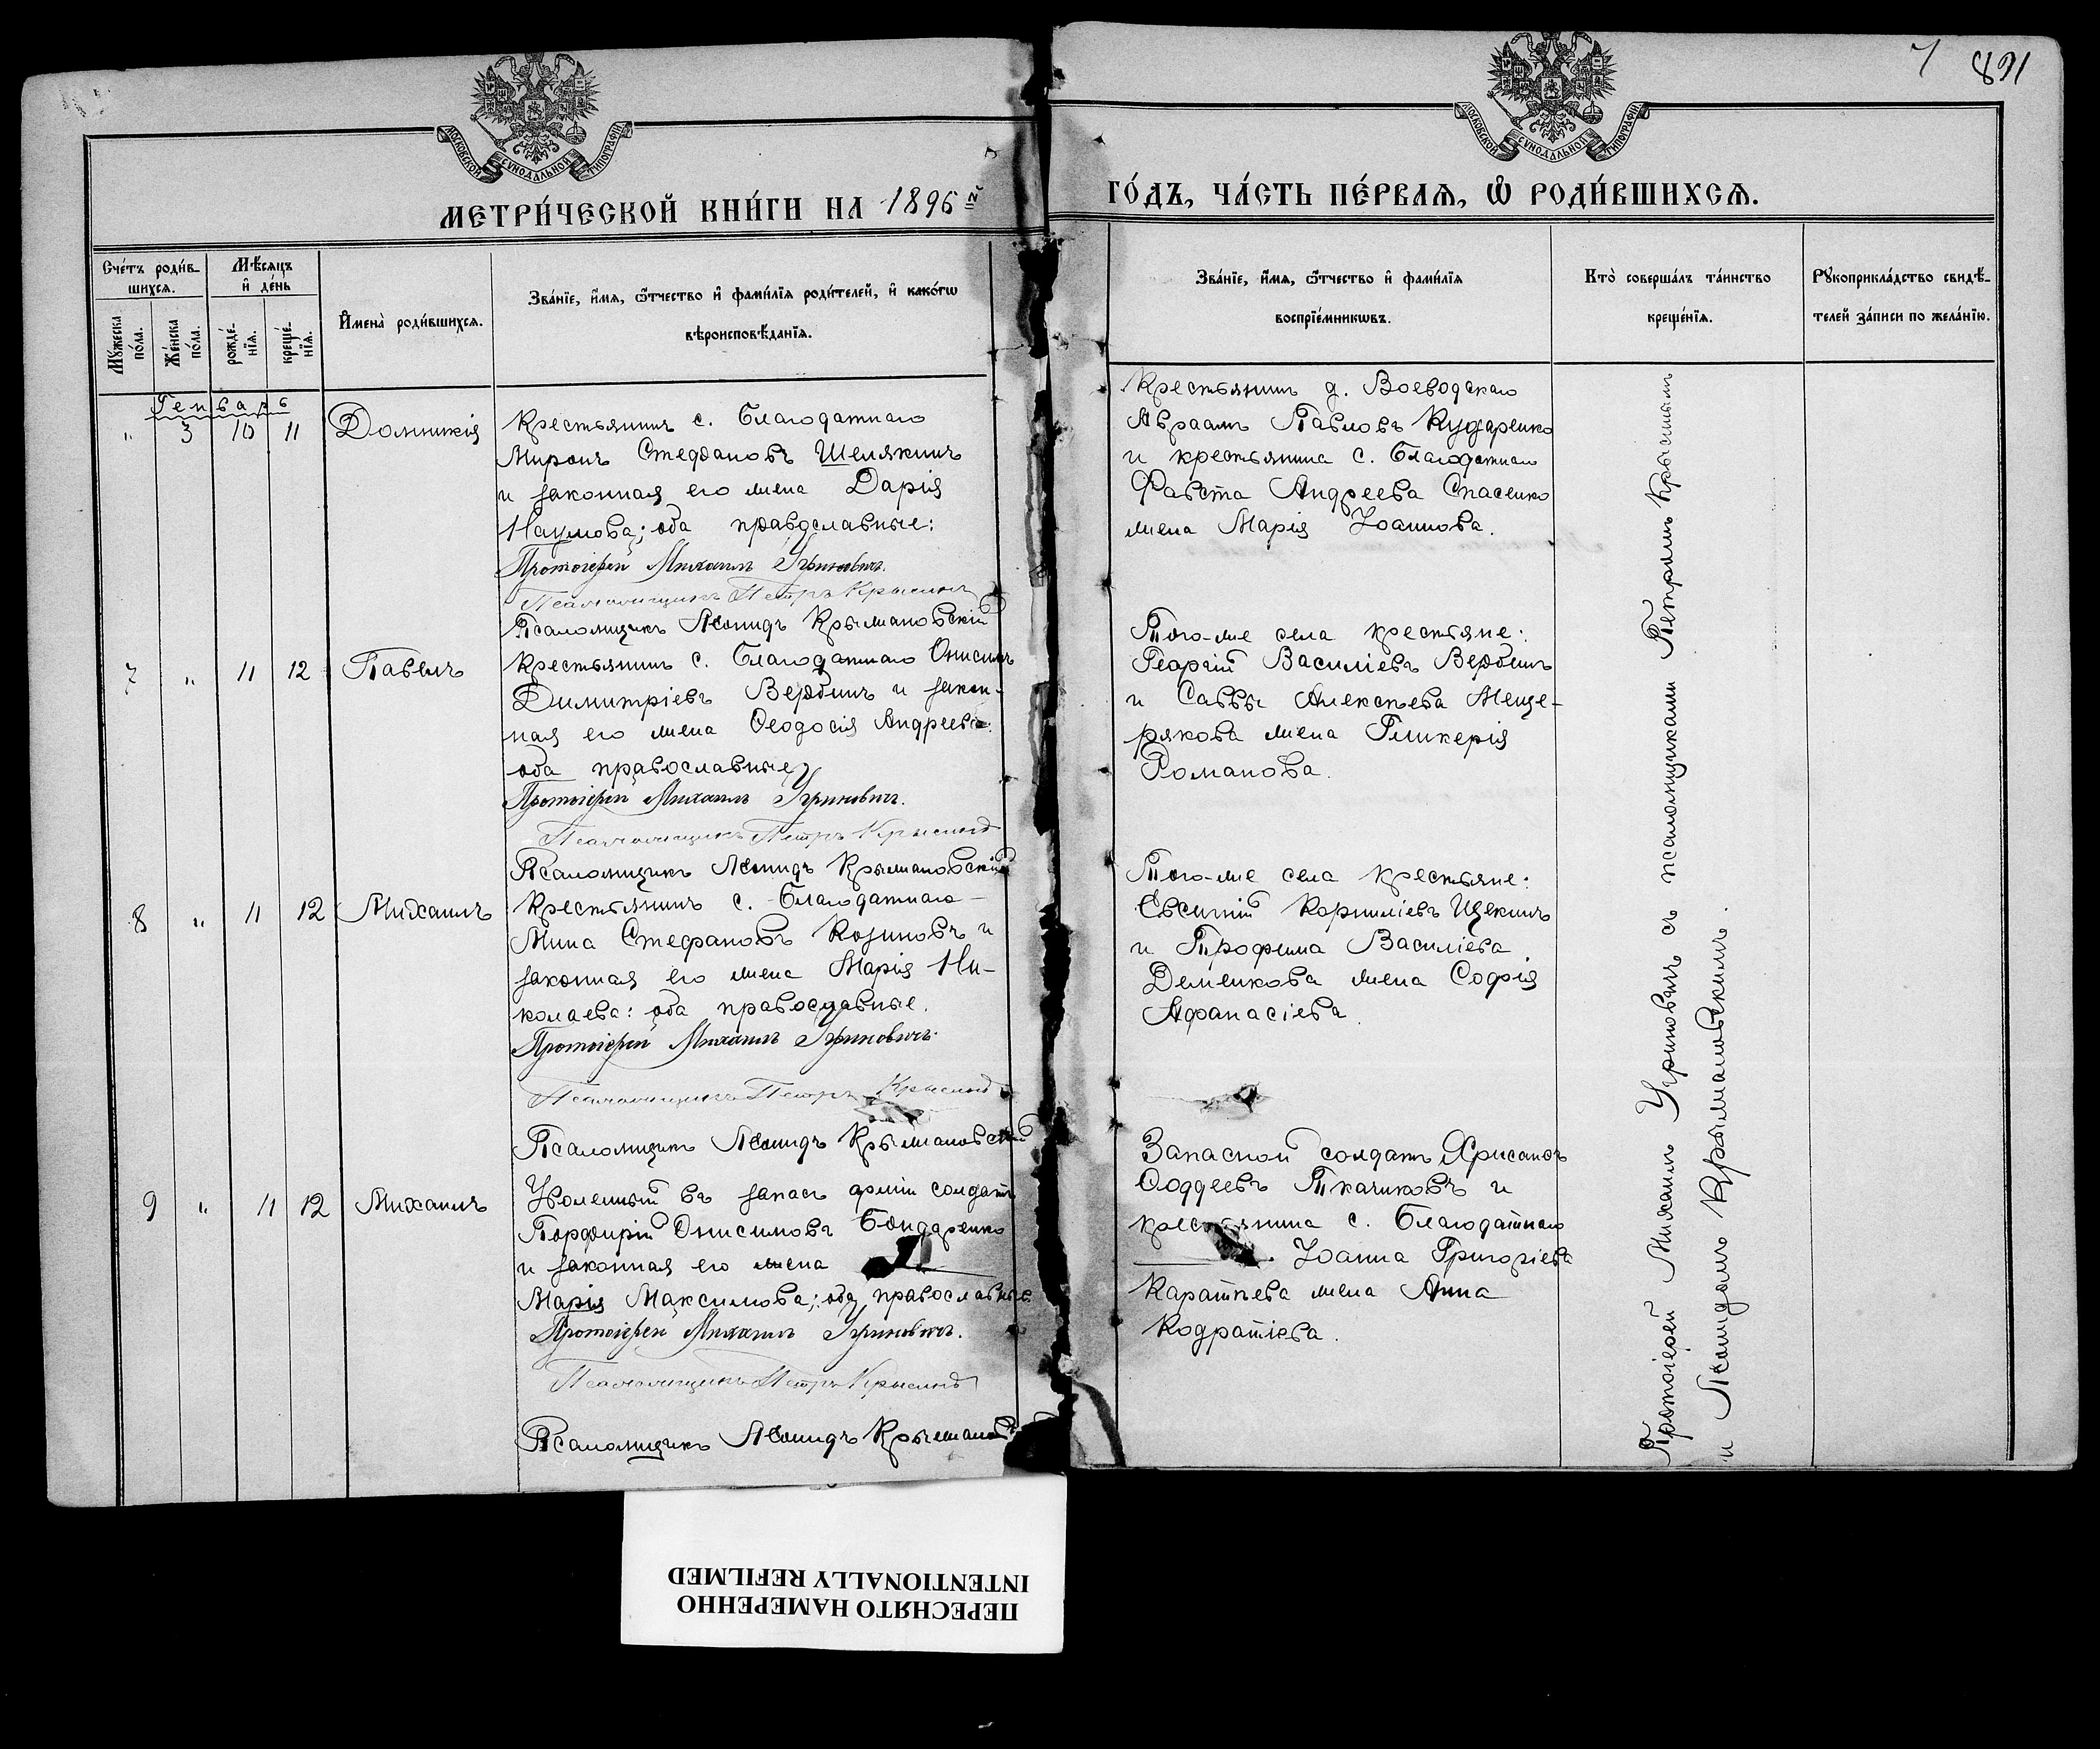 7 891
МОСКОВСКОЙ СѴНОДАЛЬНОЙ ТИПОГРАФІИ
МОСКОВСКОЙ СѴНОДАЛЬНОЙ ТИПОГРАФІИ
МЕТРИ́ЧЕСКОЙ КНИ́ГИ НА 1896 й
ГО́ДЪ, ЧА́СТЬ ПЕ́РВАѦ, Ѡ РОДИ́ВШИХСѦ.
Сче́тъ роди́в-
шихся.
Мѣ́сяцъ
и де́нь
Му́жеска по́ла.
Же́нска по́ла.
рожде́-
нія.
креще́-
нія.
Имена̀ роди́вшихся.
Зва́ніе, и́мя, ѻ҆́тчество и фами́лія роди́телей, и како́гѡ
вѣроисповѣ́данія.
Зва́ніе, и́мя, ѻ҆́тчество и фами́лія
воспріе́мникѡвъ.
Кто̀ соверша́лъ та́инство
креще́нія.
Рꙋкоприкла́дство свидѣ́-
телей за́писи по жела́нію.
Генварь
" 3 10 11 Домникія
Крестьянинъ с. Благодатнаго
Миронъ Стефановъ Шелякинъ
и законная его жена Дарія
Наумова; оба православные:
Протоіерей Михаилъ Угриновичъ.
Псаломщикъ Петръ Крысинъ
Псаломщикъ Леонидъ Крыжановскій
Крестьянинъ д. Воеводскаго
Авраамъ Павловъ Кударенко
и крестьянина с. Благодатнаго
Фавста Андреева Спасенко
жена Марія Іоаннова.
7 " 11 12 Павелъ
Крестьянинъ с. Благодатнаго Онисимъ
Димитріевъ Вербинъ и закон-
ная его жена Ѳеодосія Андреева:
оба православные
Протоіерей Михаилъ Угриновичъ.
Псаломщикъ Петръ Крысинъ
Псаломщикъ Леонидъ Крыжановскій
Того-же села крестьяне:
Георгій Василіевъ Вербинъ
и Саввы Алексѣева Меще-
рякова жена Гликерія
Романова.
8 " 11 12 Михаилъ
Крестьянинъ с. Благодатнаго
Мина Стефановъ Козиновъ и
законная его жена Марія Ни-
колаева: оба православные.
Протоіерей Михаилъ Угриновичъ.
Псаломщикъ Петръ Крысинъ
Псаломщикъ Леонидъ Крыжановскій
Того-же села крестьяне:
Евсигній Корниліевъ Щекинъ
и Трофима Василіева
Деменкова жена Софія
Афанасіева.
9 " 11 12 Михаилъ
Уволенный въ запасъ арміи солдатъ
Порфирій Онисимовъ Бондаренко
и законная его жена
Марія Максимова; оба православные
Протоіерей Михаилъ Угриновичъ.
Псаломщикъ Петръ Крысинъ
Псаломщикъ Леонидъ Крыжановскій
Запасной солдатъ Хрисанѳъ
Ѳаддеевъ Ткачиковъ и
крестьянина с. Благодатнаго
Іоанна Григоріева
Каратѣева жена Анна
Кодратіева.
Протоіерей Михаилъ Угриновичъ съ псаломщиками Петромъ Крысинымъ
и Леонидомъ Крыжановскимъ.
ПЕРЕСНЯТО НАМЕРЕННО
INTENTIONALLY REFILMED